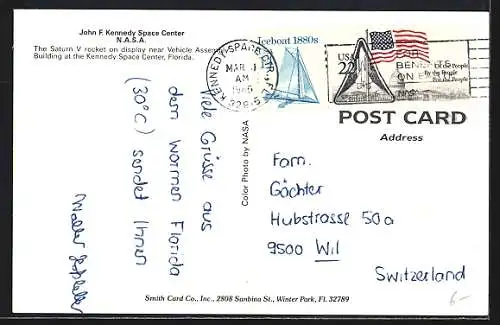 John F. Kennedy Space Center
N.A.S.A.
The Saturn V rocket on display near Vehicle Assembly
Building at the Kennedy Space Center, Florida.
KENNEDY SPACE CTR., FL
MAR
AM
1986
Iceboat 1880s
USA
22
FOR
BENEFITS
ON E
Of the People
By the People
For the People
NASA
POST CARD
Address
Viele Grüsse aus
dem warmen Florida
(30°C) sendet Ihnen
Walter
Color Photo by NASA
Fam.
Gächter
Hubstrasse 50a
9500 Wil
Switzerland
Smith Card Co., Inc., 2808 Sanbina St., Winter Park, FL 32789
6.-